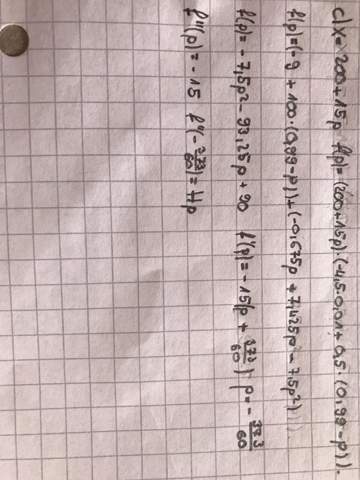 c) x = 200 + 15p f(p) = (200+15p)·(-4,5·0,01 + 0,5·(0,99-p)).
f(p) = (-9 + 100·(0,99-p)) + (-0,675p + 7,425p - 7,5p²)
f(p) = -7,5p² - 93,25p + 90 f'(p) = -15(p + 373/60) p = - 373/60
f''(p) = -15 f''(-373/60) = Hp